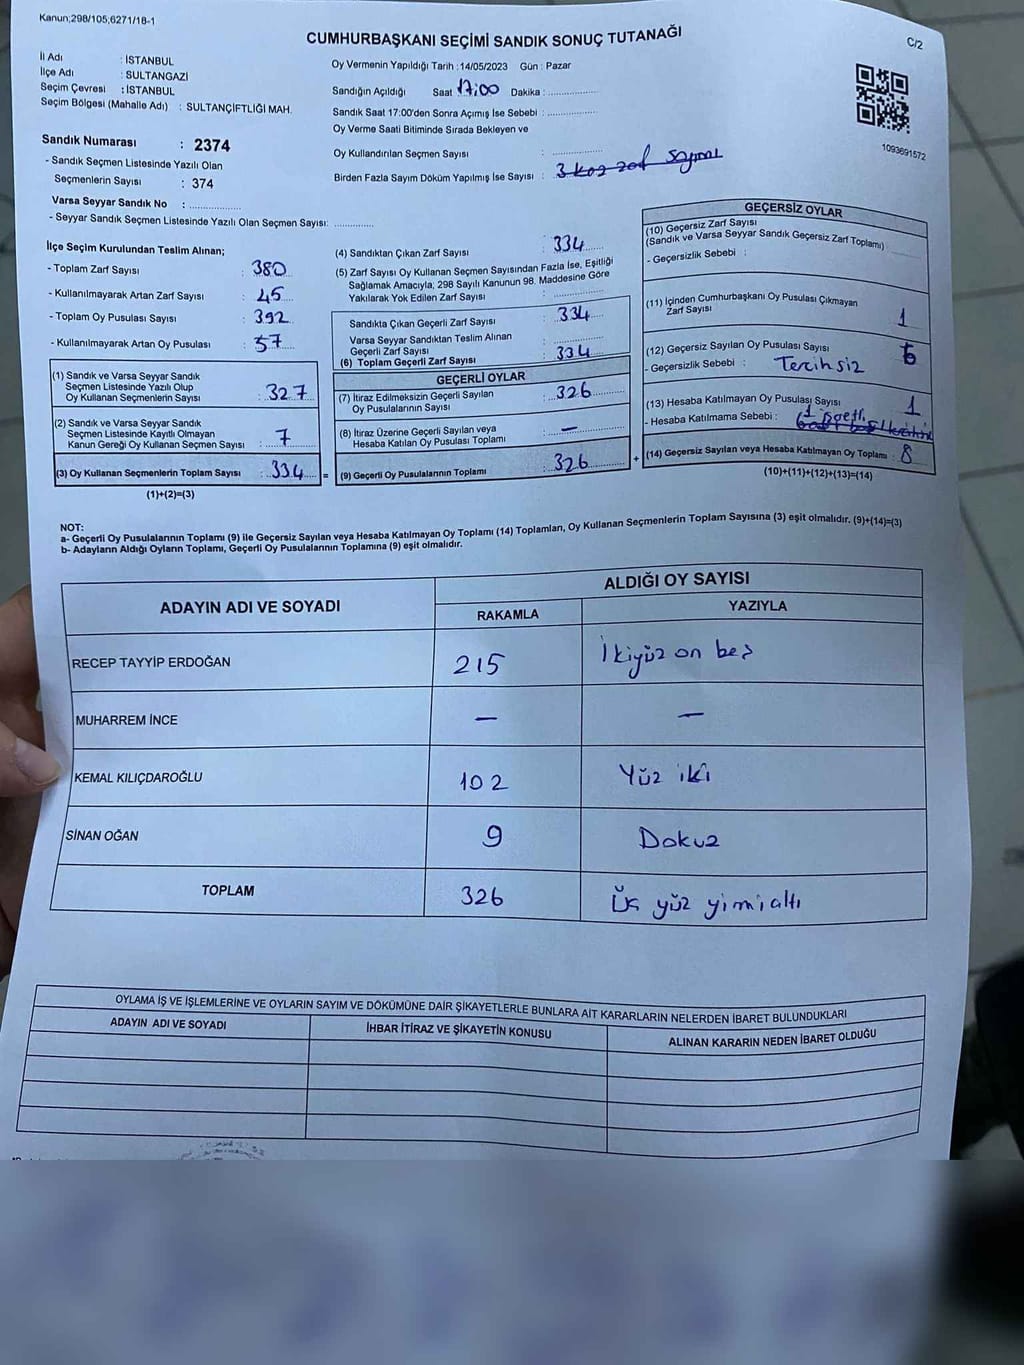 Kanun;298/105;6271/18-1
CUMHURBAŞKANI SEÇİMİ SANDIK SONUÇ TUTANAĞI
C/2
İl Adı : İSTANBUL
İlçe Adı : SULTANGAZİ
Seçim Çevresi : İSTANBUL
Seçim Bölgesi (Mahalle Adı) : SULTANÇİFTLİĞİ MAH.
Sandık Numarası : 2374
- Sandık Seçmen Listesinde Yazılı Olan
Seçmenlerin Sayısı : 374
Varsa Seyyar Sandık No : ..................
- Seyyar Sandık Seçmen Listesinde Yazılı Olan Seçmen Sayısı: ..............
Oy Vermenin Yapıldığı Tarih :14/05/2023 Gün : Pazar
Sandığın Açıldığı Saat 17:00 Dakika : ..................
Sandık Saat 17:00'den Sonra Açımış İse Sebebi : ..................
Oy Verme Saati Bitiminde Sırada Bekleyen ve
Oy Kullandırılan Seçmen Sayısı : ..................
Birden Fazla Sayım Döküm Yapılmış İse Sayısı : 3 kez zarf sayımı
1093691572
İlçe Seçim Kurulundan Teslim Alınan;
- Toplam Zarf Sayısı : 380
- Kullanılmayarak Artan Zarf Sayısı : 45
- Toplam Oy Pusulası Sayısı : 392
- Kullanılmayarak Artan Oy Pusulası : 57
(1) Sandık ve Varsa Seyyar Sandık
Seçmen Listesinde Yazılı Olup
Oy Kullanan Seçmenlerin Sayısı : 327
(2) Sandık ve Varsa Seyyar Sandık
Seçmen Listesinde Kayıtlı Olmayan
Kanun Gereği Oy Kullanan Seçmen Sayısı : 7
(3) Oy Kullanan Seçmenlerin Toplam Sayısı : 334 =
(1)+(2)=(3)
(4) Sandıktan Çıkan Zarf Sayısı : 334
(5) Zarf Sayısı Oy Kullanan Seçmen Sayısından Fazla İse, Eşitliği
Sağlamak Amacıyla, 298 Sayılı Kanunun 98. Maddesine Göre
Yakılarak Yok Edilen Zarf Sayısı : ..................
Sandıkta Çıkan Geçerli Zarf Sayısı : 334
Varsa Seyyar Sandıktan Teslim Alınan
Geçerli Zarf Sayısı : ..................
(6) Toplam Geçerli Zarf Sayısı : 334
GEÇERLİ OYLAR
(7) İtiraz Edilmeksizin Geçerli Sayılan
Oy Pusulalarının Sayısı : 326
(8) İtiraz Üzerine Geçerli Sayılan veya
Hesaba Katılan Oy Pusulası Toplamı : —
(9) Geçerli Oy Pusulalarının Toplamı : 326 +
GEÇERSİZ OYLAR
(10) Geçersiz Zarf Sayısı
(Sandık ve Varsa Seyyar Sandık Geçersiz Zarf Toplamı)
- Geçersizlik Sebebi :
(11) İçinden Cumhurbaşkanı Oy Pusulası Çıkmayan
Zarf Sayısı 1
(12) Geçersiz Sayılan Oy Pusulası Sayısı 6
- Geçersizlik Sebebi : Tercihsiz
(13) Hesaba Katılmayan Oy Pusulası Sayısı 1
- Hesaba Katılmama Sebebi :
(14) Geçersiz Sayılan veya Hesaba Katılmayan Oy Toplamı : 8
(10)+(11)+(12)+(13)=(14)
NOT:
a- Geçerli Oy Pusulalarının Toplamı (9) ile Geçersiz Sayılan veya Hesaba Katılmayan Oy Toplamı (14) Toplamları, Oy Kullanan Seçmenlerin Toplam Sayısına (3) eşit olmalıdır. (9)+(14)=(3)
b- Adayların Aldığı Oyların Toplamı, Geçerli Oy Pusulalarının Toplamına (9) eşit olmalıdır.
ADAYIN ADI VE SOYADI
ALDIĞI OY SAYISI
RAKAMLA YAZIYLA
RECEP TAYYİP ERDOĞAN 215 İkiyüz on beş
MUHARREM İNCE — —
KEMAL KILIÇDAROĞLU 102 Yüz iki
SİNAN OĞAN 9 Dokuz
TOPLAM 326 Üç yüz yimialtı
OYLAMA İŞ VE İŞLEMLERİNE VE OYLARIN SAYIM VE DÖKÜMÜNE DAİR ŞİKAYETLERLE BUNLARA AİT KARARLARIN NELERDEN İBARET BULUNDUKLARI
ADAYIN ADI VE SOYADI İHBAR İTİRAZ VE ŞİKAYETİN KONUSU ALINAN KARARIN NEDEN İBARET OLDUĞU